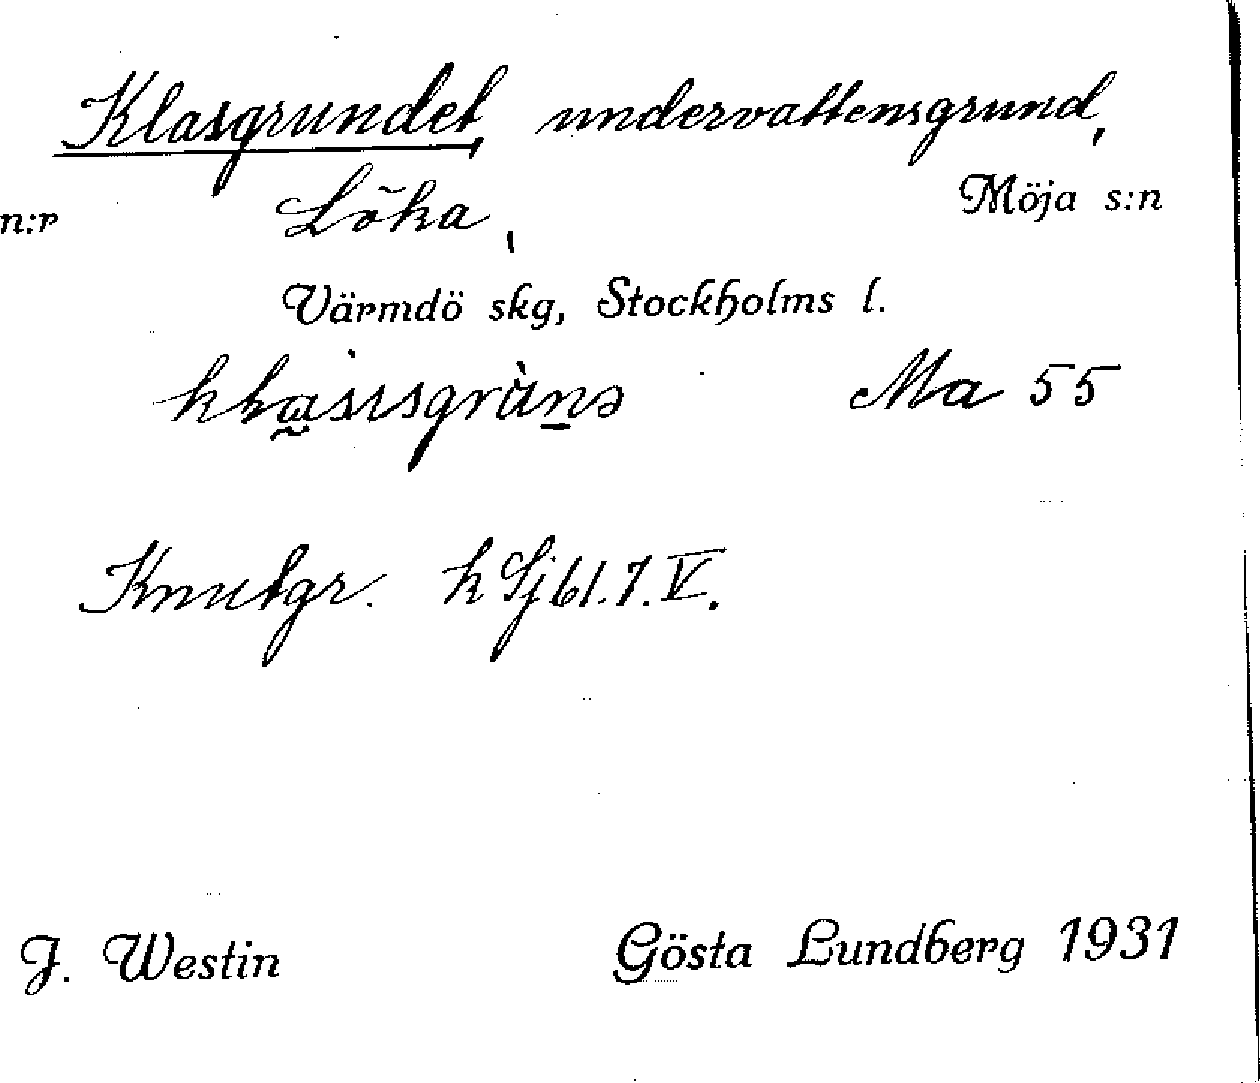 Klasgrundet, undervattensgrund,
n:r Löka, Möja s:n
Värmdö skg, Stockholms l.
Ma 55
Knutgr. k Sjbl. 7. V.
J. Westin Gösta Lundberg 1931